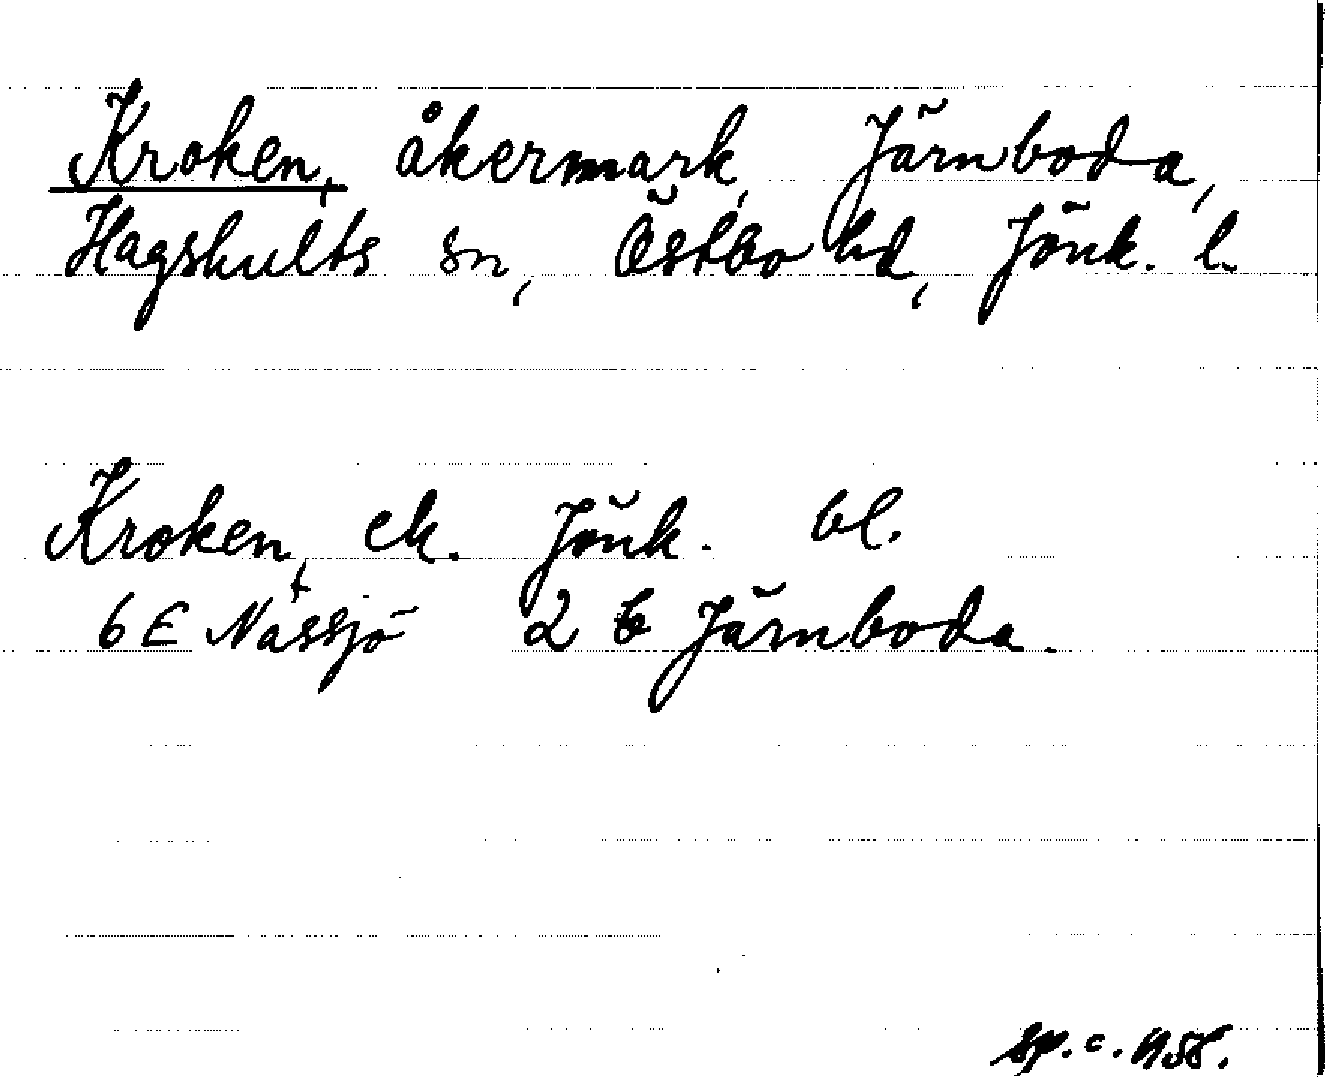 Kroken, åkermark, Järnboda,
Hagshults sn, Östbo hd, Jönk. l.
Kroken, ek. Jönk. bl.
6 E Nässjö 2 b Järnboda.